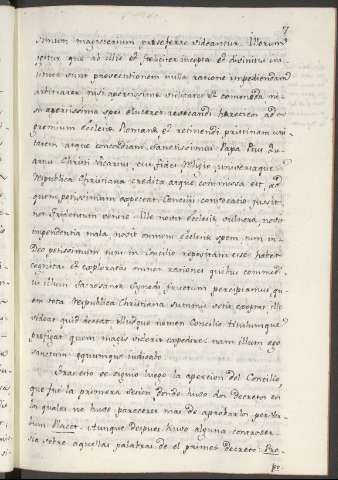 7
simum magisterium praeseferre videantur. Illorum
igitur que ab illis et foeliciter incepta et divinitus
sunt prosecutionem nulla ratione impediendam
arbitrarer nisi apertissima utilitatis et commoda
apertissima spei eluceret revocandi haereticos ad
gremium Ecclesiae Romanae, et retinendi pristinam
atque concordiam. Sanctissimus Papa Pius
Christi Vicarius, cui fidei Religio, universaque
Respublica Christiana credita atque commissa est, ad
quem potissimum expectat Concilii convocatio, jussit
nos Tridentum venire. Ille novit Ecclesiae vulnera, novit
impendentia mala, novit omnem Ecclesiae spem, tum in
Deo potissimum tum in Concilio repositam esse: habet
cognitas et exploratas omnes rationes quibus
illum Sacrosanctae Synodi fructum percipiamus
tota Respublica Christiana summis votis exoptat. Ille
videat quid deceat. Illudque nomen Concilio titulumque
prefigat quem magis viderit expedire: nam illum ego
sanctum, equumque judicabo.
Tras esto se siguio luego la apercion del Concilio,
que fue la primera sesion donde huvo dos Decretos en
los quales no huvo pareceres mas de aprobarlos per Ver-
bum Placet. Aunque despues huvo alguna controver-
sia sobre aquellas palabras de el primer Decreto: Pro-